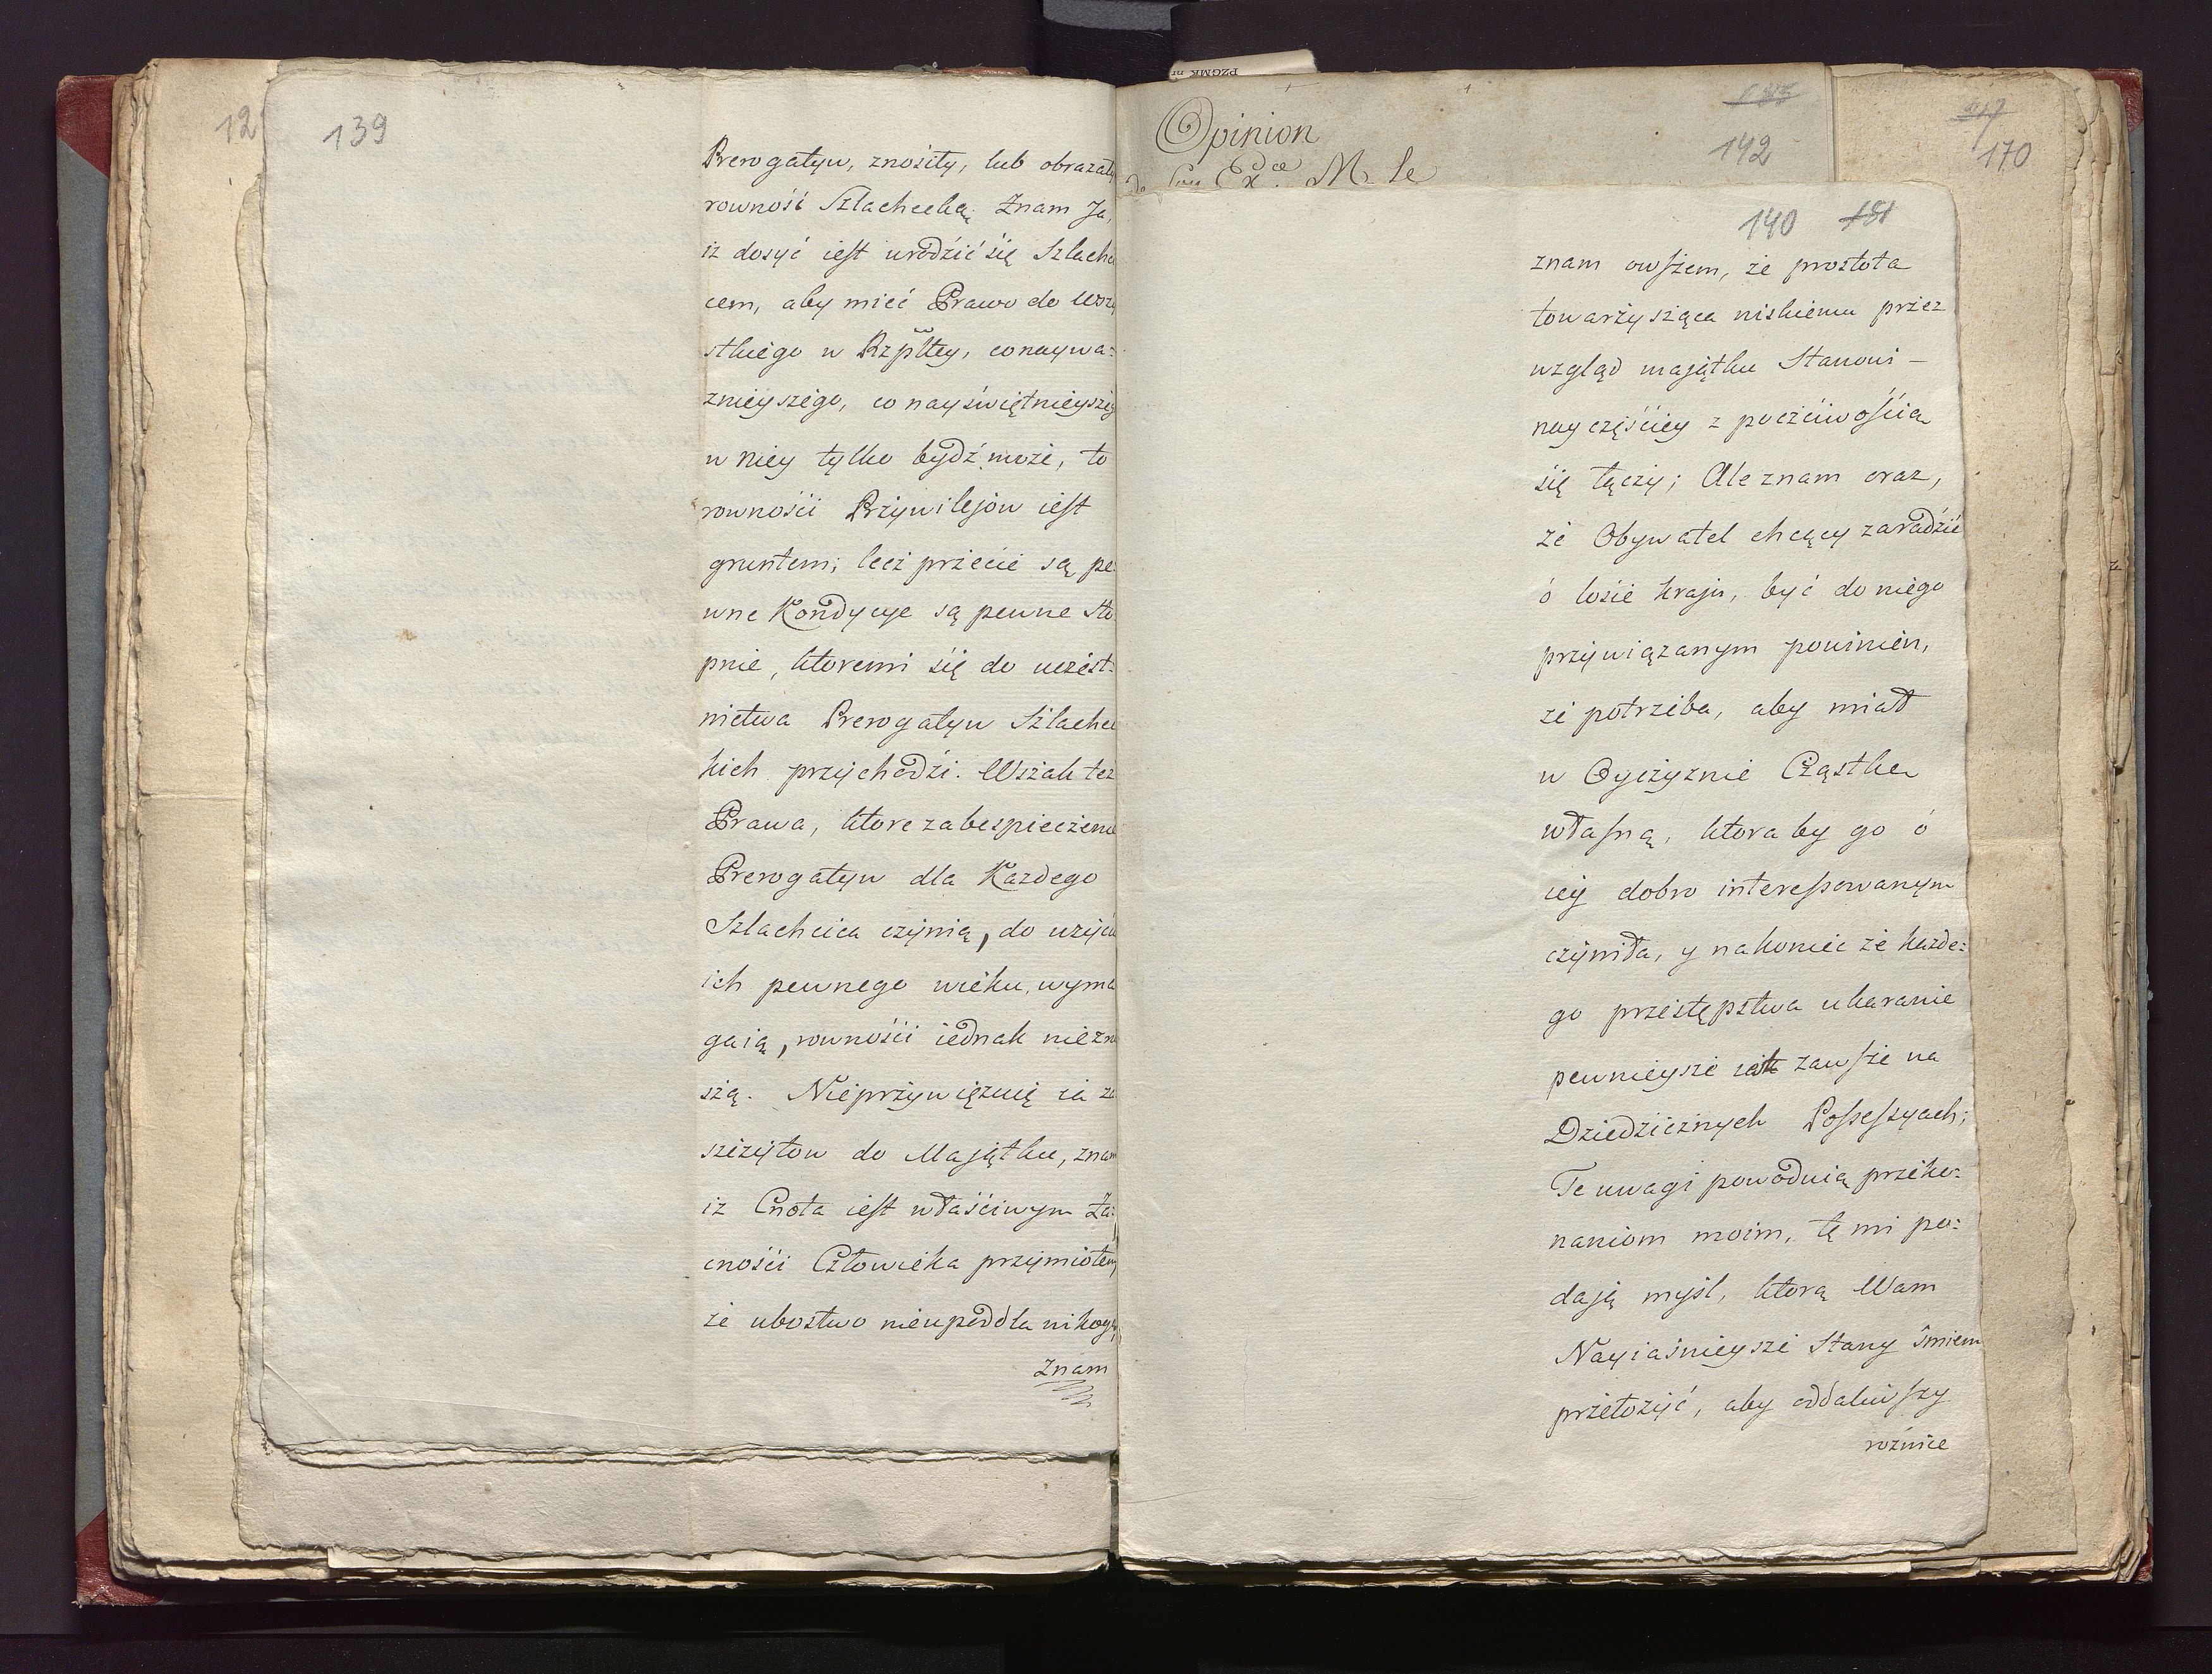 12
139
Prerogatyw, znosiły, lub obrazały
rownośż Szlachecką. Znam Ja,
iz dosyć iest urodzić się Szlache
cem, aby mieć Prawo do Wszy
stkiego w Rzpltey, co naywa:
znieyszego, co nayświętnieyszeg
w niey tylko bydź może, to
rownośći Przywilejow iest
gruntem; lecz przecie są pe:
wne Kondycye są pewne Sto
pnie, ktoremi się do uczest:
nictwa Prerogatyw Szlachec
kich przychodzi. Wszak tez
Prawa, ktore zabespieczenie
Prerogatyw dla Kazdego
Szlachcica czynią, do uzyciu
ich pewnego wieku, wyma
gaią, rownośći iednak niezno
szą. Nieprzywięzuię ia za
szczytow do Majątku, znam
iz Cnota iest właśćiwym Za:
cnośći Człowieka przymiotem,
że ubostwo nieupodla nikogo,
Znam
Opinion
de Son Exce. M. le
142
170
140 151
znam owszem, że prostota
towarzysząca niskiemu przez
wzgląd majątku Stanowi –
nayczęśćiey z poczćiwośćią
się łączy; Ale znam oraz,
że Obywatel chcący zaradzić
ó losie kraju, być do niego
przywiązanym powinien,
że potrzeba, aby miał
w Oyczyznie Cząstke
własną, ktora by go ó
iey dobro interessowanym
czyniła, y nakoniec że kazde:
go przestępstwa ukaranie
pewnieysze iest zawsze na
Dziedzicznych Possessyach;
Te uwagi powodnią przeko:
naniom moim, tę mi po:
dają mysl, ktorą Wam
Nayiaśnieysze Stany śmiem
przełozyć, aby oddaliwszy
roznice